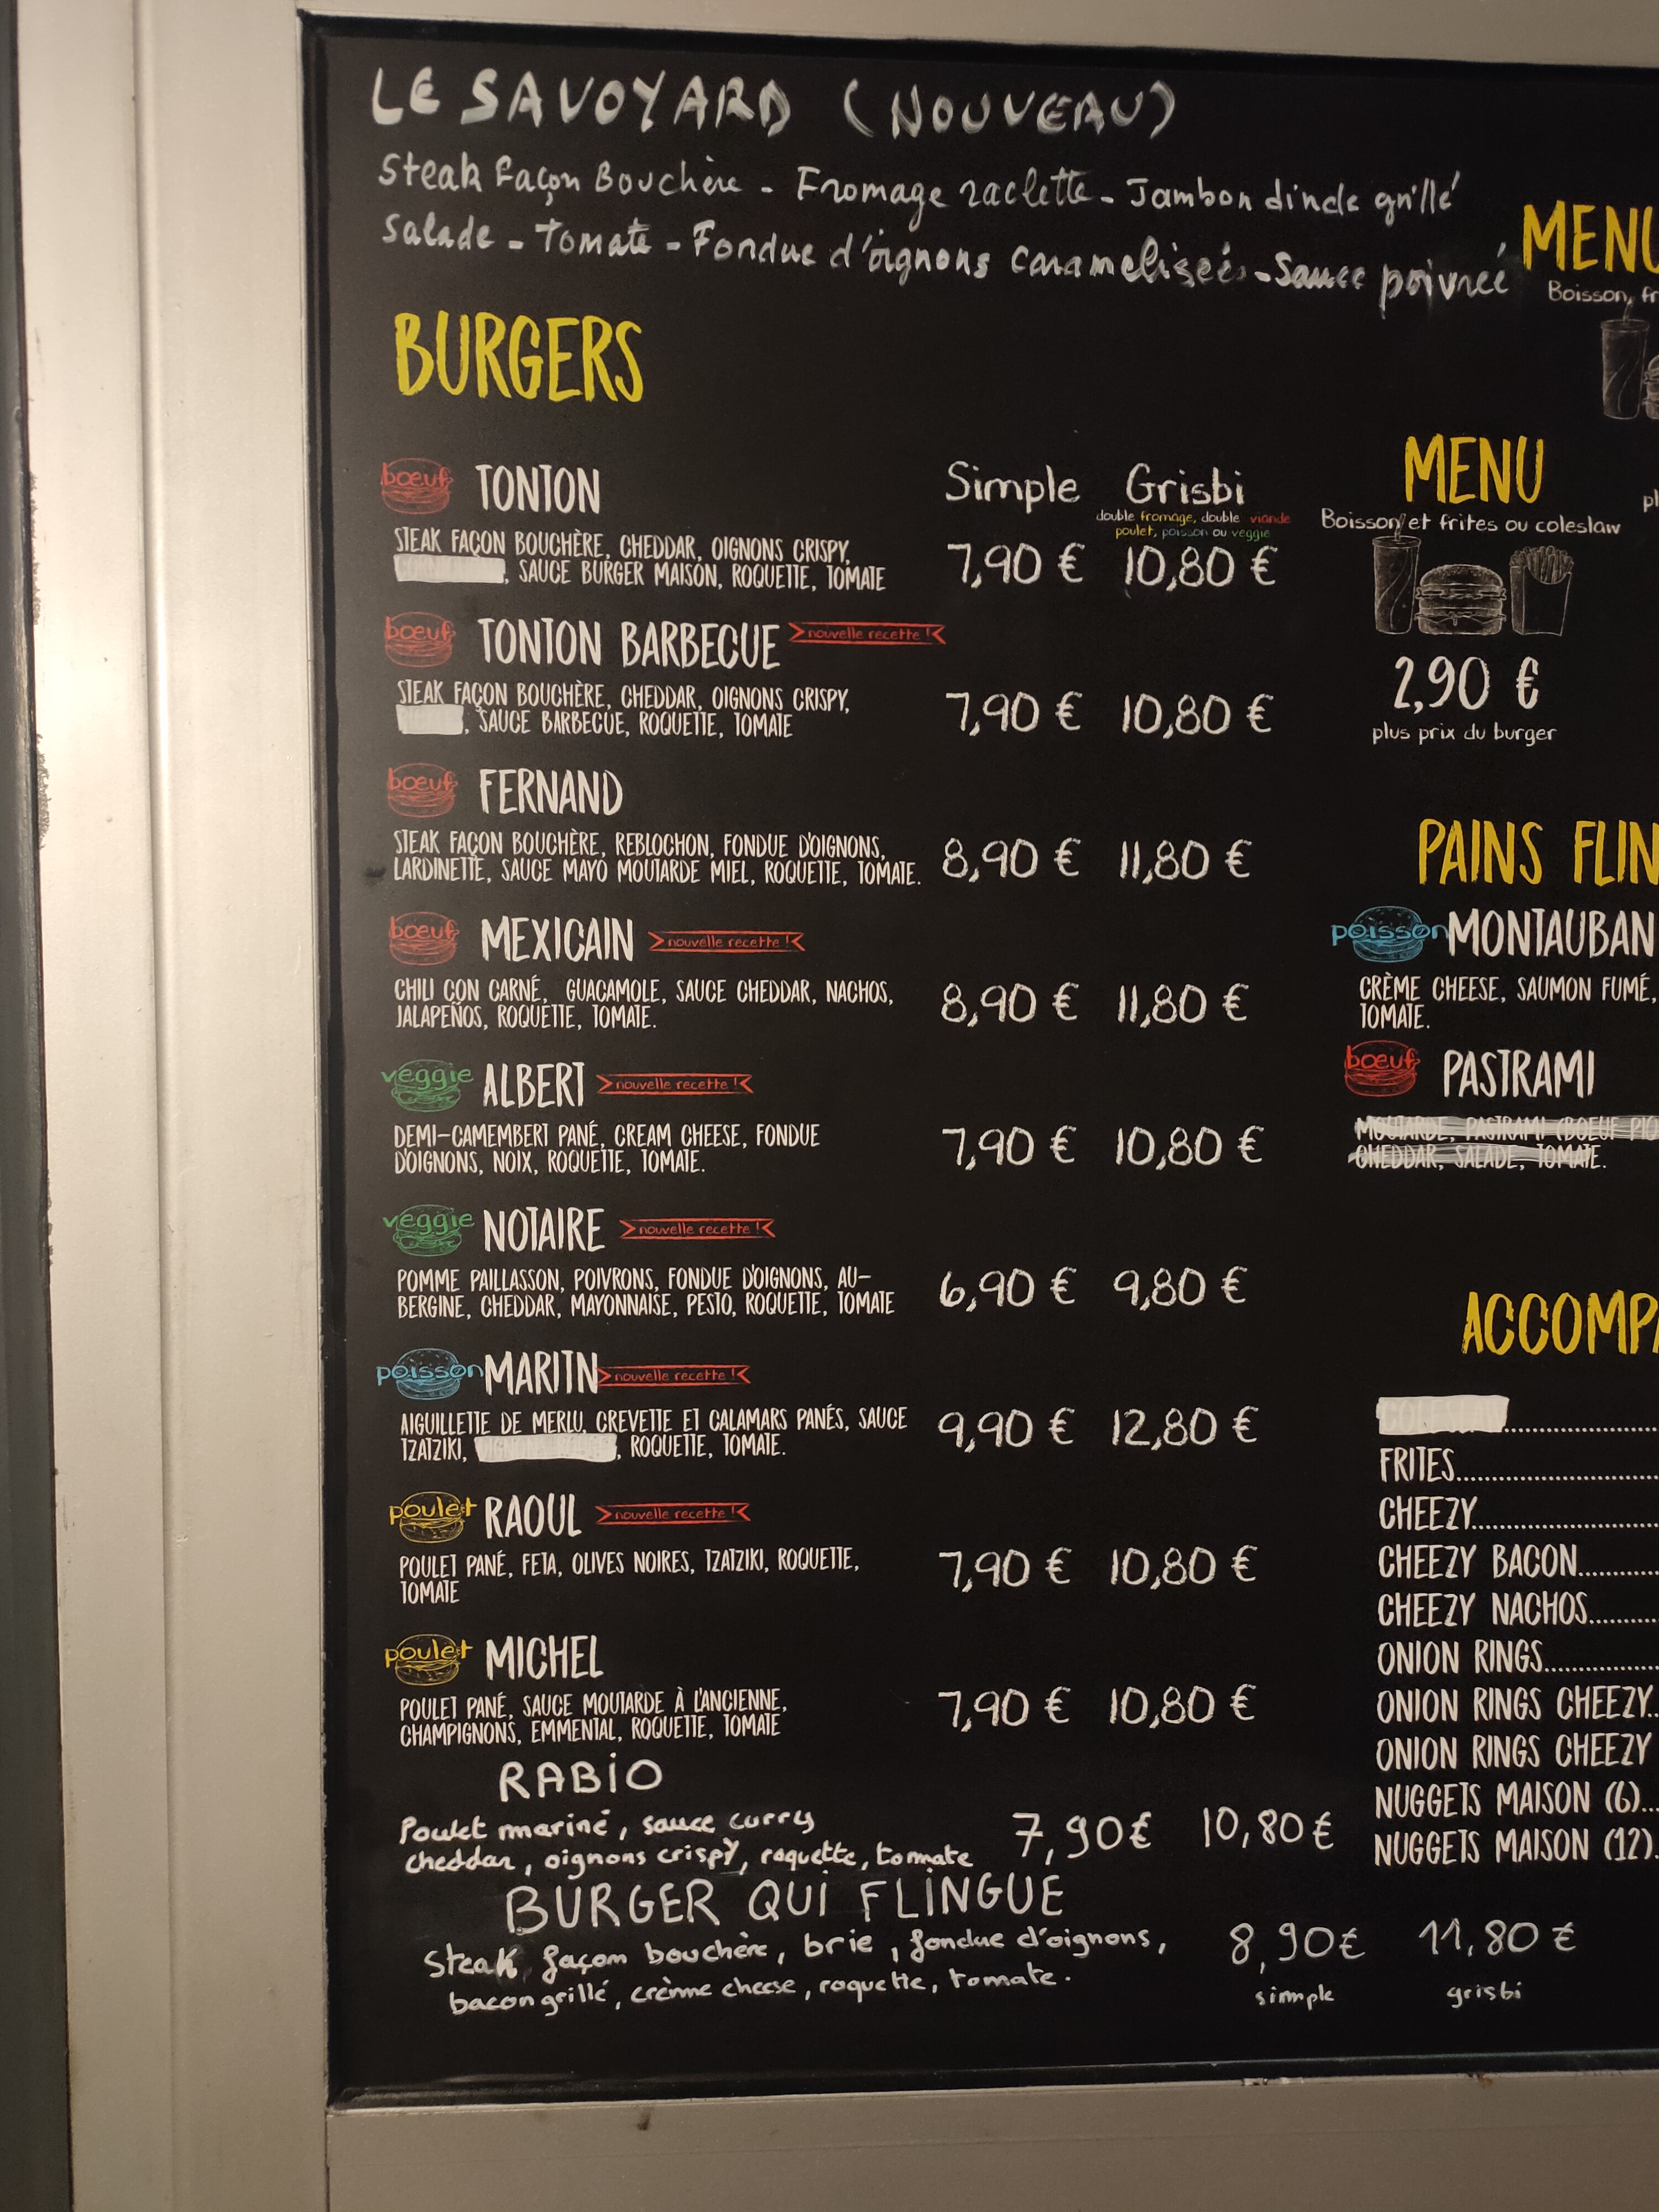 LE SAVOYARD (NOUVEAU)
Steak Façon Bouchère - Fromage raclette - Jambon dinde grillé
Salade - Tomate - Fondue d'oignons caramelisées - Sauce poivrée
MENU
Boisson, fr
BURGERS
boeuf TONTON
Simple Grisbi
double fromage, double viande
poulet, poisson ou veggie
STEAK FAÇON BOUCHÈRE, CHEDDAR, OIGNONS CRISPY,
, SAUCE BURGER MAISON, ROQUETTE, TOMATE
7,90 € 10,80 €
boeuf TONTON BARBECUE nouvelle recette !
STEAK FAÇON BOUCHÈRE, CHEDDAR, OIGNONS CRISPY,
, SAUCE BARBECUE, ROQUETTE, TOMATE
7,90 € 10,80 €
boeuf FERNAND
STEAK FAÇON BOUCHÈRE, REBLOCHON, FONDUE D'OIGNONS,
LARDINETTE, SAUCE MAYO MOUTARDE MIEL, ROQUETTE, TOMATE.
8,90 € 11,80 €
boeuf MEXICAIN nouvelle recette !
CHILI CON CARNÉ, GUACAMOLE, SAUCE CHEDDAR, NACHOS,
JALAPEÑOS, ROQUETTE, TOMATE.
8,90 € 11,80 €
veggie ALBERT nouvelle recette !
DEMI-CAMEMBERT PANÉ, CREAM CHEESE, FONDUE
D'OIGNONS, NOIX, ROQUETTE, TOMATE.
7,90 € 10,80 €
veggie NOTAIRE nouvelle recette !
POMME PAILLASSON, POIVRONS, FONDUE D'OIGNONS, AU-
BERGINE, CHEDDAR, MAYONNAISE, PESTO, ROQUETTE, TOMATE
6,90 € 9,80 €
poisson MARITN nouvelle recette !
AIGUILLETTE DE MERLU, CREVETTE ET CALAMARS PANÉS, SAUCE
TZATZIKI, , ROQUETTE, TOMATE.
9,90 € 12,80 €
poulet RAOUL nouvelle recette !
POULET PANÉ, FETA, OLIVES NOIRES, TZATZIKI, ROQUETTE,
TOMATE
7,90 € 10,80 €
poulet MICHEL
POULET PANÉ, SAUCE MOUTARDE À L'ANCIENNE,
CHAMPIGNONS, EMMENTAL, ROQUETTE, TOMATE
7,90 € 10,80 €
RABIO
Poulet mariné, sauce curry
cheddar, oignons crispy, roquette, tomate
7,90€ 10,80€
BURGER QUI FLINGUE
Steak façon bouchère, brie, fondue d'oignons,
bacon grillé, crème cheese, roquette, tomate.
8,90€ 11,80€
simple grisbi
MENU
Boisson et frites ou coleslaw
2,90 €
plus prix du burger
pl
PAINS FLIN
poisson MONTAUBAN
CRÈME CHEESE, SAUMON FUMÉ,
TOMATE.
boeuf PASTRAMI
MOUTARDE, PASTRAMI (BOEUF PIQ
CHEDDAR, SALADE, TOMATE.
ACCOMPA
COLESLAW
FRITES
CHEEZY
CHEEZY BACON
CHEEZY NACHOS
ONION RINGS
ONION RINGS CHEEZY
ONION RINGS CHEEZY
NUGGETS MAISON (6)
NUGGETS MAISON (12)